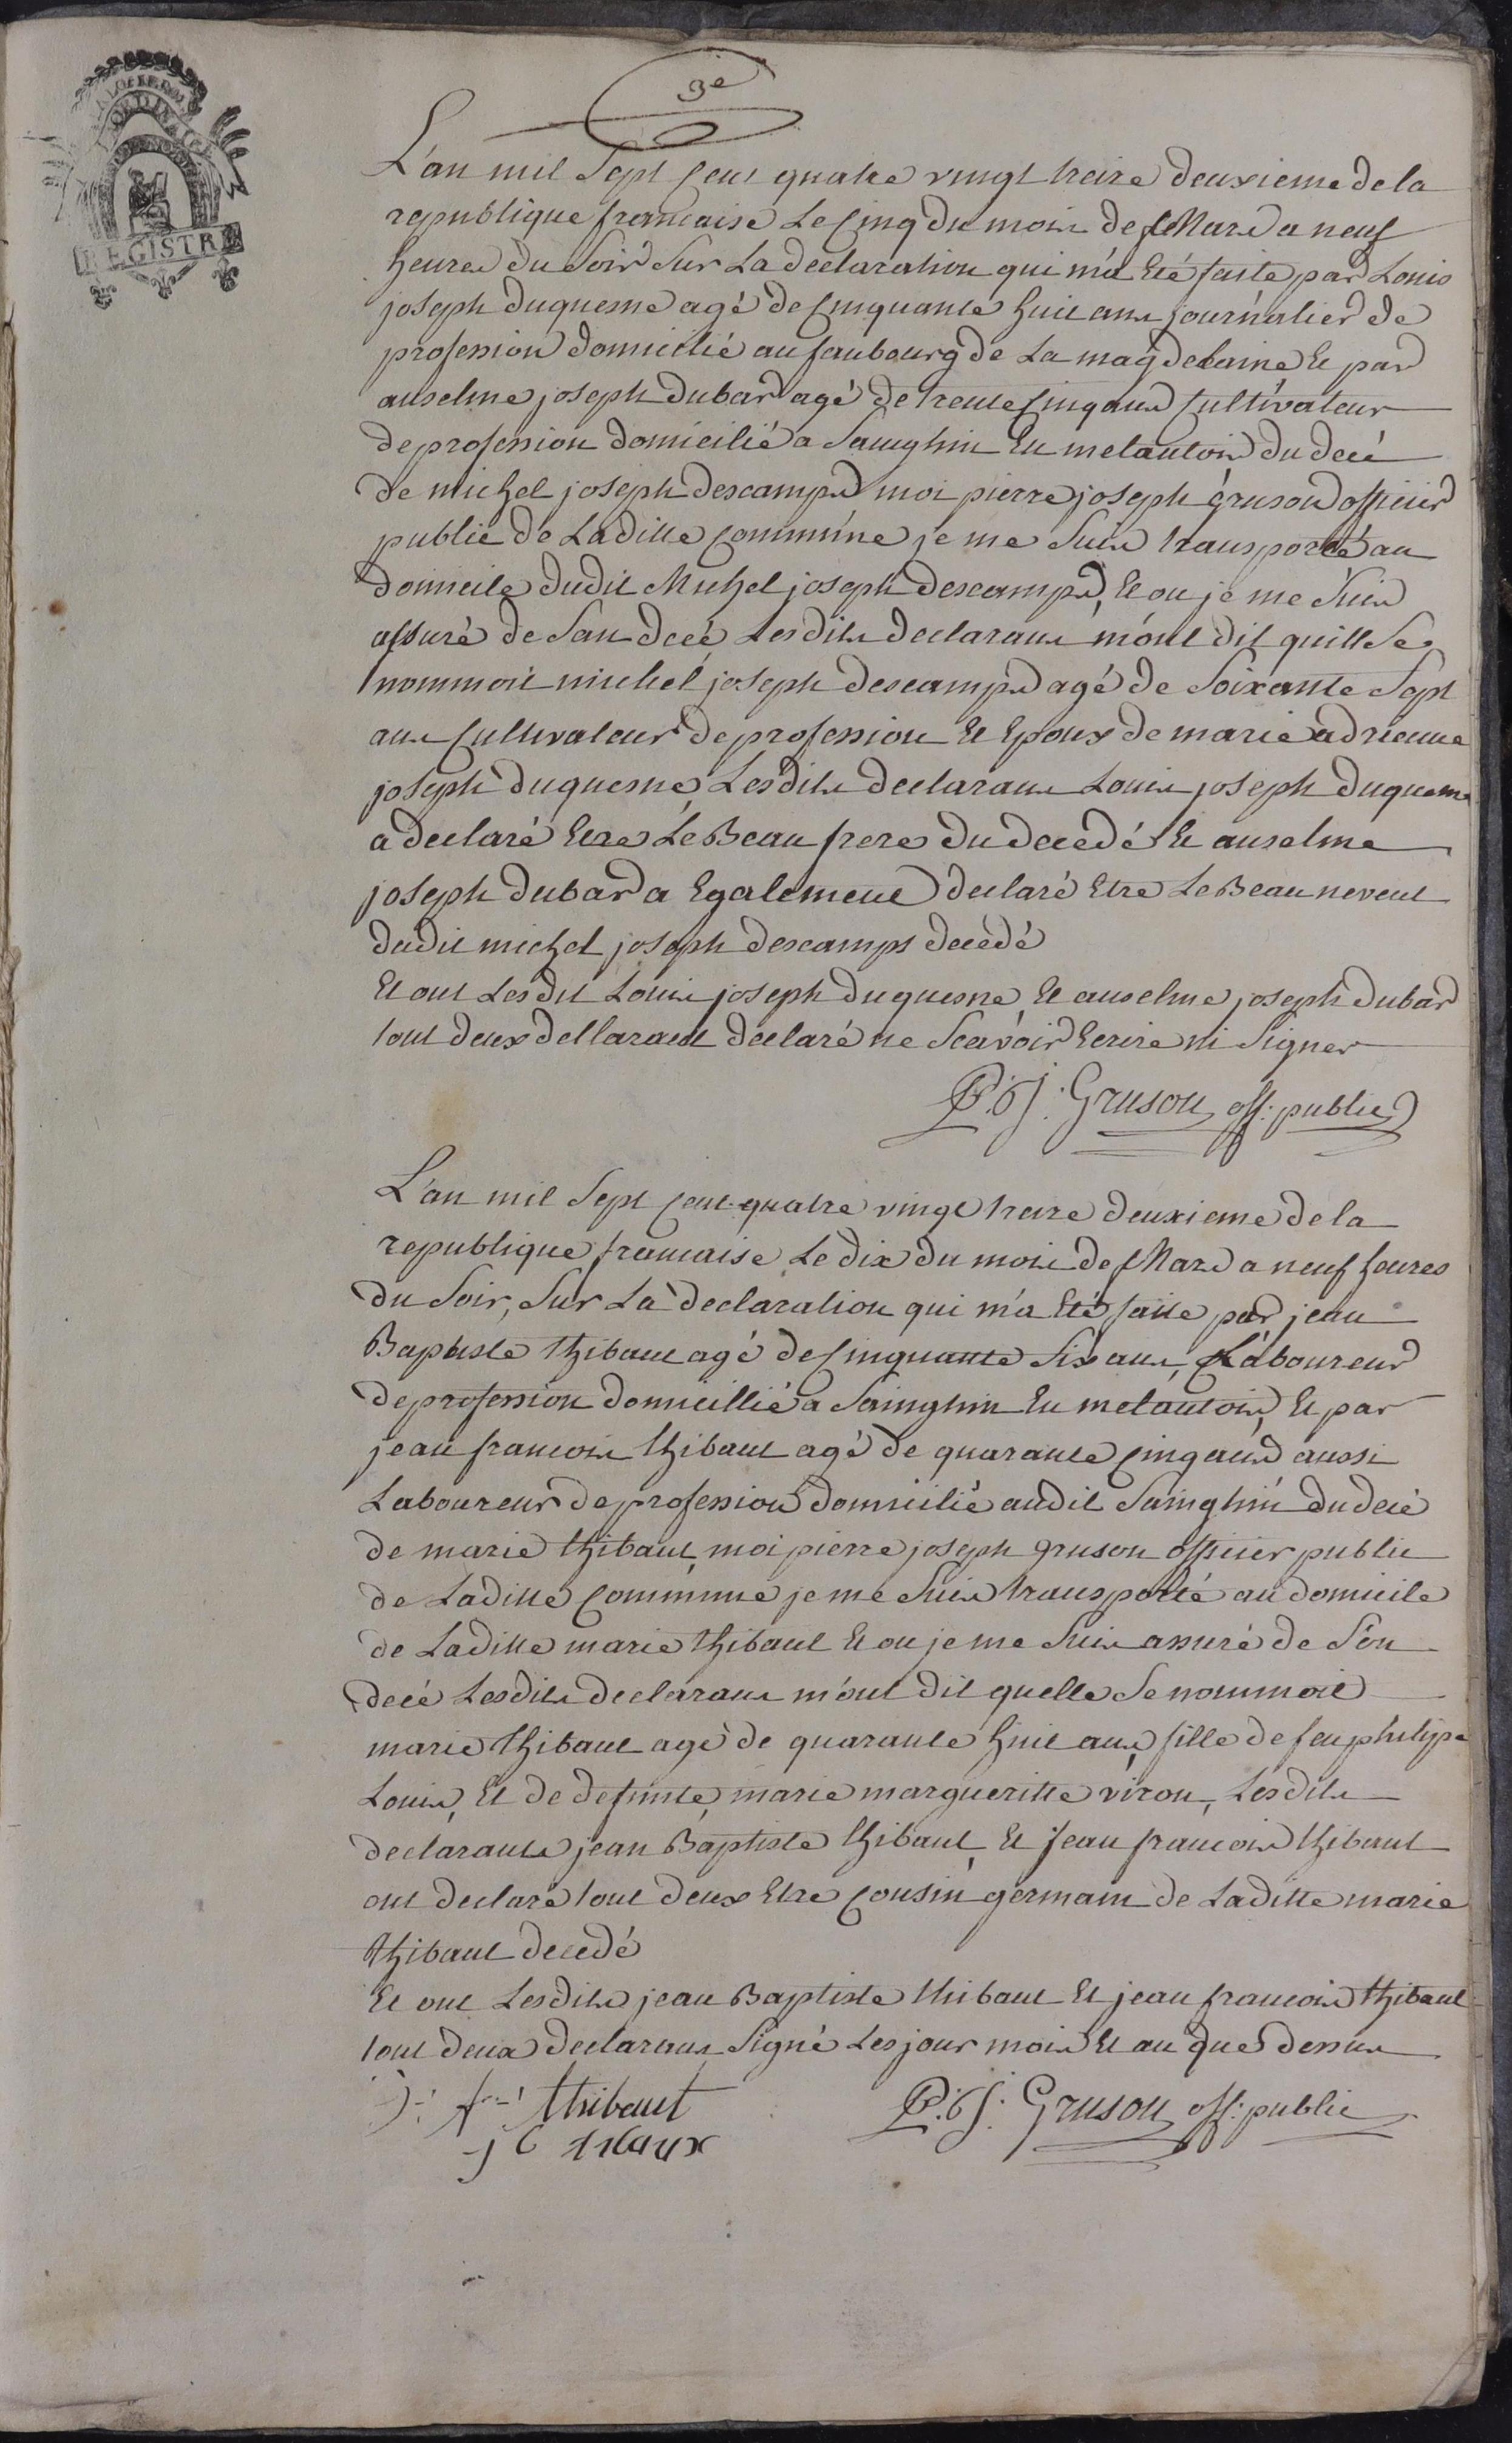 3e
REGISTRE
L'an mil Sept Cent quatre vingt treize deuxieme de la
republique francaise Le Cinq du mois de Mars a neuf
heures du Soir Sur La declaration qui m'a Eté faite par Louis
joseph duquesne agé de Cinquante huit ans journalier de
profession domicilié au faubourg de La magdelaine Et par
anselme joseph dubar agé de trente Cinq ans Cultivateur
de profession domicilié a Sainghin En melantois du decé
de michel joseph descamps moi pierre joseph gruson officier
public de Laditte Commune je me Suis transporté au
domicile dudit Michel joseph descamps, Et ou je me Suis
assuré de San decé Lesdits declarans m'ont dit quill Se
nommoit michel joseph descamps agé de Soixante Sept
ans Cultivateur de profession Et Epoux de marie adrienne
joseph duquesne, Lesdits declarans Louis joseph duquesne
a declaré Etre Le Beau frere du decedé Et anselme
joseph dubar a Egalement declaré Etre Le Beau neveut
dudit michel joseph descamps decedé
Et ont Lesdit Louis joseph duquesne Et anselme joseph dubar
tout deux dellarant declaré ne Scavoir Ecrire ni Signer
P:J: Gruson off: public
L'an mil Sept Cent quatre vingt treize deuxieme de la
republique francaise Le dix du mois de Mars a neuf heures
du Soir, Sur La declaration qui m'a Eté faitte par jean
Baptiste thibaut agé de Cinquante Six ans, Laboureur
de profession domicillié a Sainghin En melantois, Et par
jean francois thibaut agé de quarante Cinq ans aussi
Laboureur de profession domicilié audit Sainghin du decé
de marie thibaut, moi pierre joseph gruson officier public
de Laditte Commune je me Suis transporté au domicile
de Laditte marie thibaut Et ou je me Suis assuré de Son
decé Lesdits declarans m'ont dit quelle Se nommoit
marie thibaut agé de quarante huit ans, fille de feu philippe
Louis, Et de defunte, marie margueritte viron, Lesdits
declarants jean Baptiste thibaut Et jean francois thibaut
ont declaré tout deux Etre Cousin germain de Laditte marie
thibaut decedé
Et ont Lesdits jean Baptiste thibaut Et jean francois thibaut
tout deux declarans Signé Les jour mois Et an que dessus
thibaut P:J: Gruson off: public